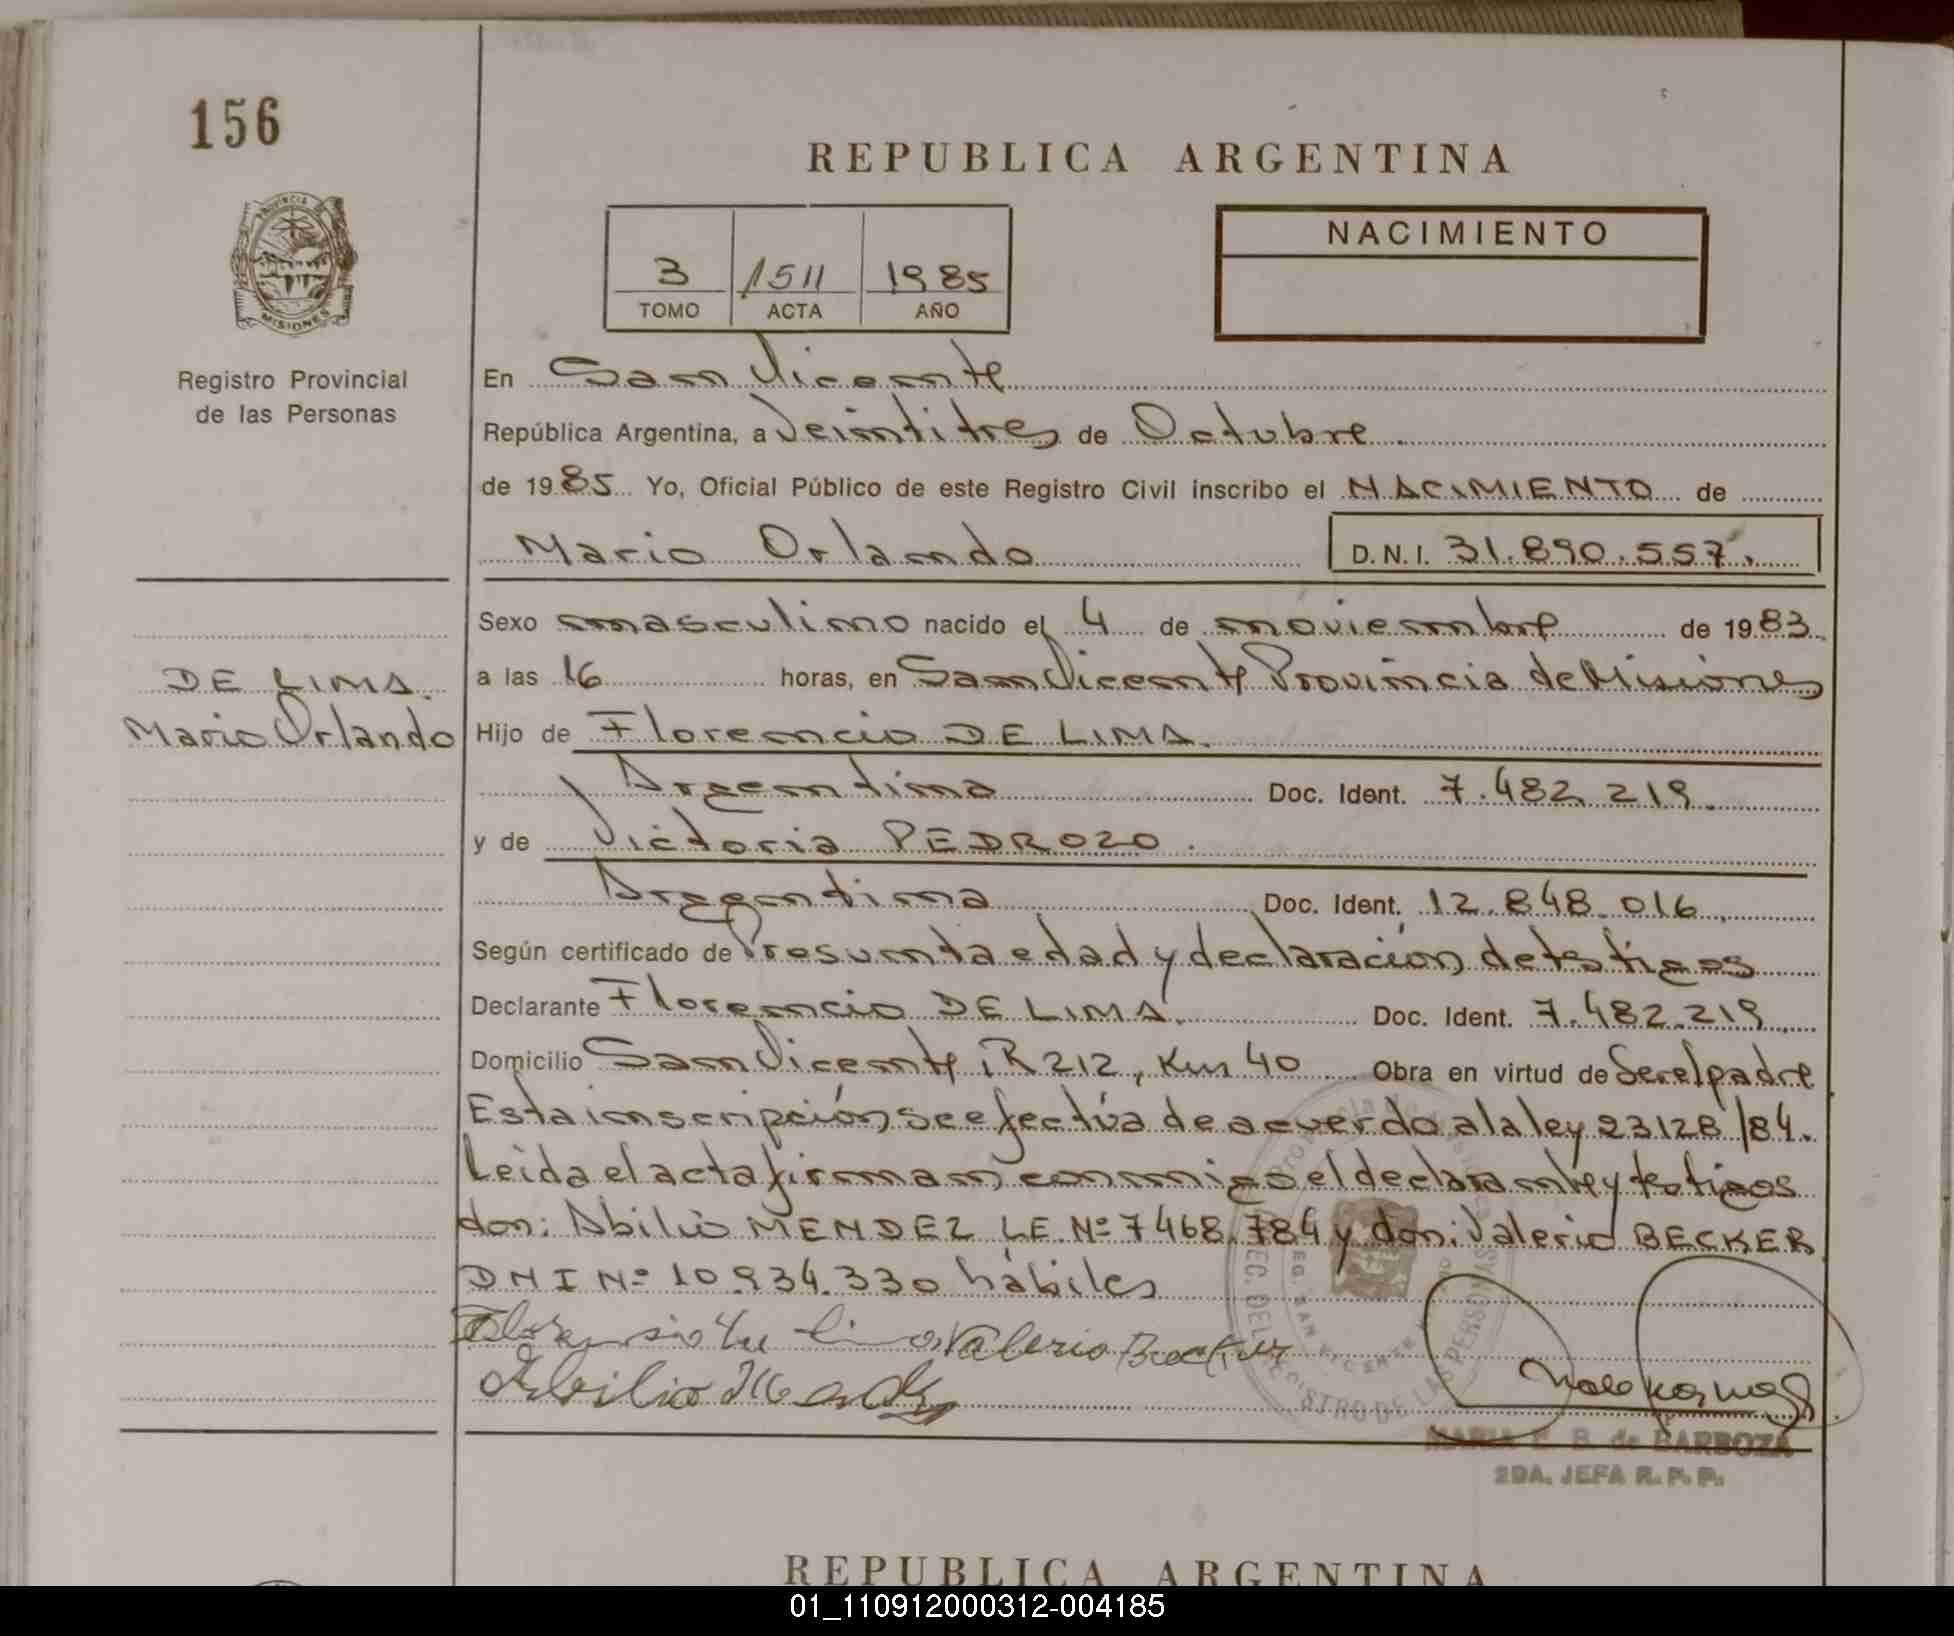 156
REPUBLICA ARGENTINA
PROVINCIA DE
MISIONES
NACIMIENTO
3 1511 1985
TOMO ACTA AÑO
Registro Provincial
de las Personas
En San Vicente
República Argentina, a Veintitres de Octubre
de 1985 Yo, Oficial Público de este Registro Civil inscribo el NACIMIENTO de
Mario Orlando D.N.I. 31.890.557.
Sexo masculino nacido el 4 de noviembre de 1983
a las 16 horas, en San Vicente Provincia de Misiones
DE LIMA.
Mario Orlando
Hijo de Florencio DE LIMA.
Argentina Doc. Ident. 7.482.219.
y de Victoria PEDROZO.
Argentina Doc. Ident. 12.848.016
Según certificado de Presunta edad y declaración de testigos
Declarante Florencio DE LIMA. Doc. Ident. 7.482.219
Domicilio San Vicente, R 212, Km 40 Obra en virtud de Ser el padre
Esta inscripción se efectúa de acuerdo a la ley 23128/84.
Leida el acta firman conmigo el declarante y testigos
don: Abilio MENDEZ LE Nº 7468.784 y don: Valerio BECKER
DNI Nº 10.934.330 hábiles
Valerio Becker
Abilio Mendez
MARIA E. B. de BARBOZA
2DA. JEFA R. P. P.
REPUBLICA ARGENTINA
01_110912000312-004185